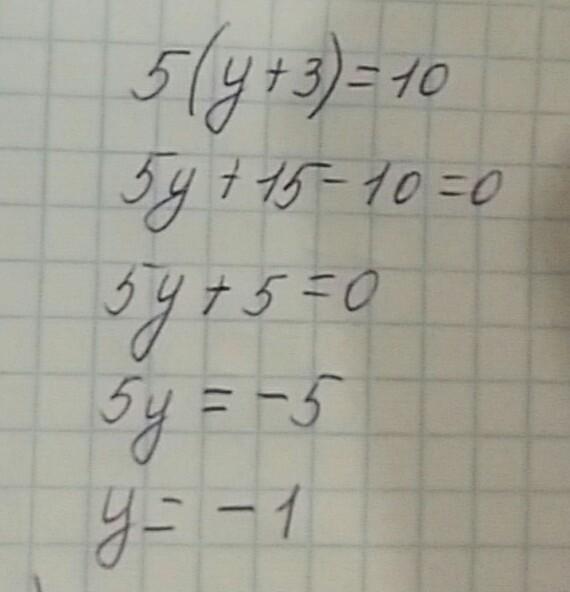 5(y+3)=10
5y+15-10=0
5y+5=0
5y=-5
y=-1